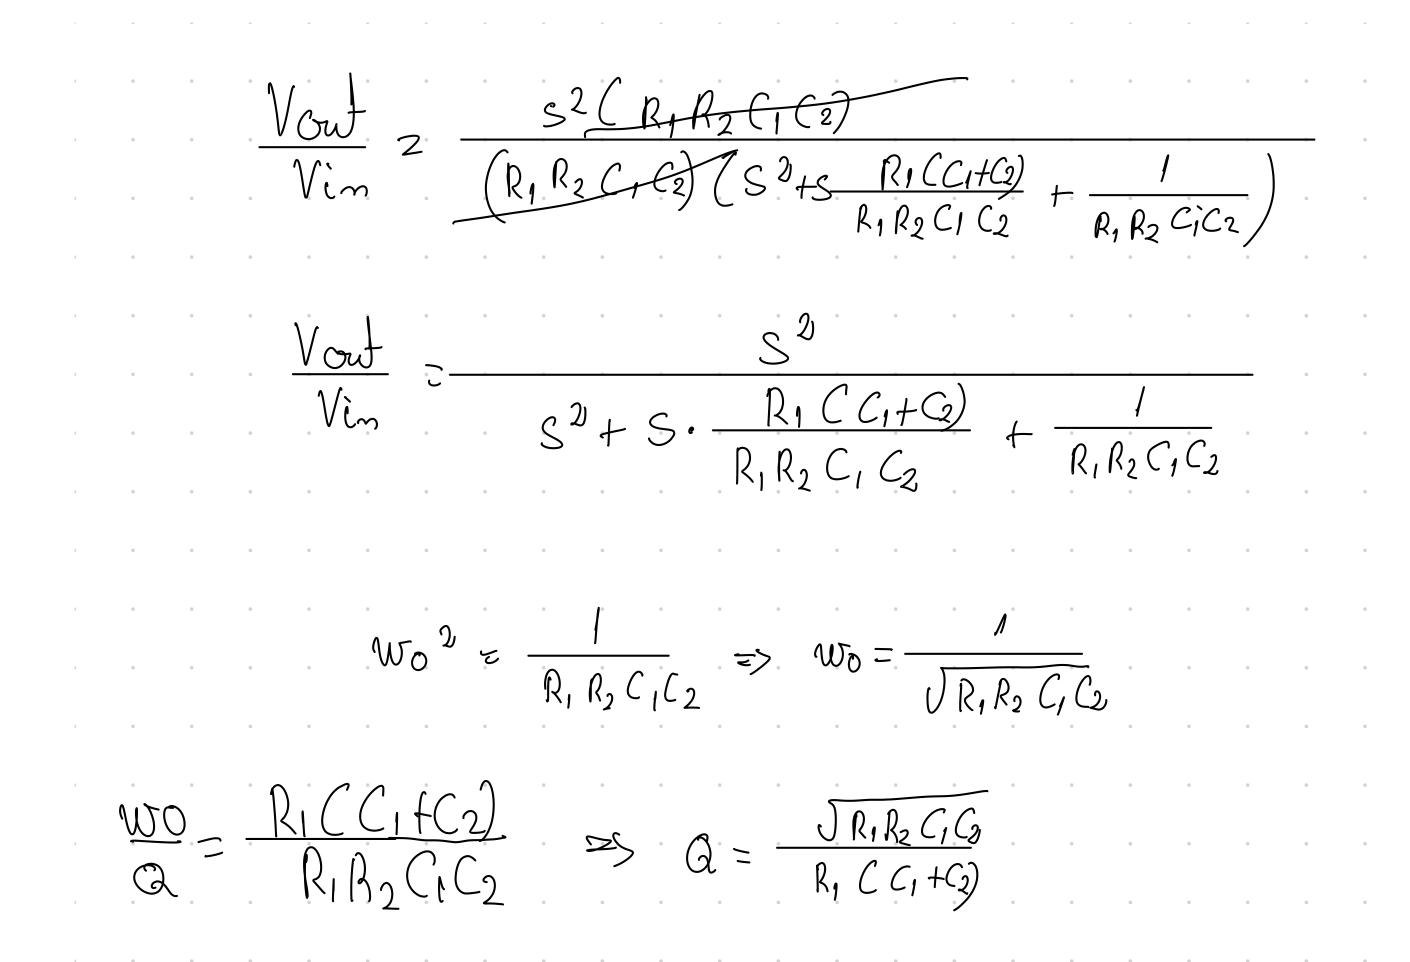 Vout/Vin = s²(R₁R₂C₁C₂) / (R₁R₂C₁C₂)(S²+S R₁(C₁+C₂)/R₁R₂C₁C₂ + 1/R₁R₂C₁C₂)
Vout/Vin = S² / S² + S · R₁(C₁+C₂)/R₁R₂C₁C₂ + 1/R₁R₂C₁C₂
w₀² = 1/R₁R₂C₁C₂ => w₀ = 1/√R₁R₂C₁C₂
w₀/Q = R₁(C₁+C₂)/R₁R₂C₁C₂ => Q = √R₁R₂C₁C₂/R₁(C₁+C₂)